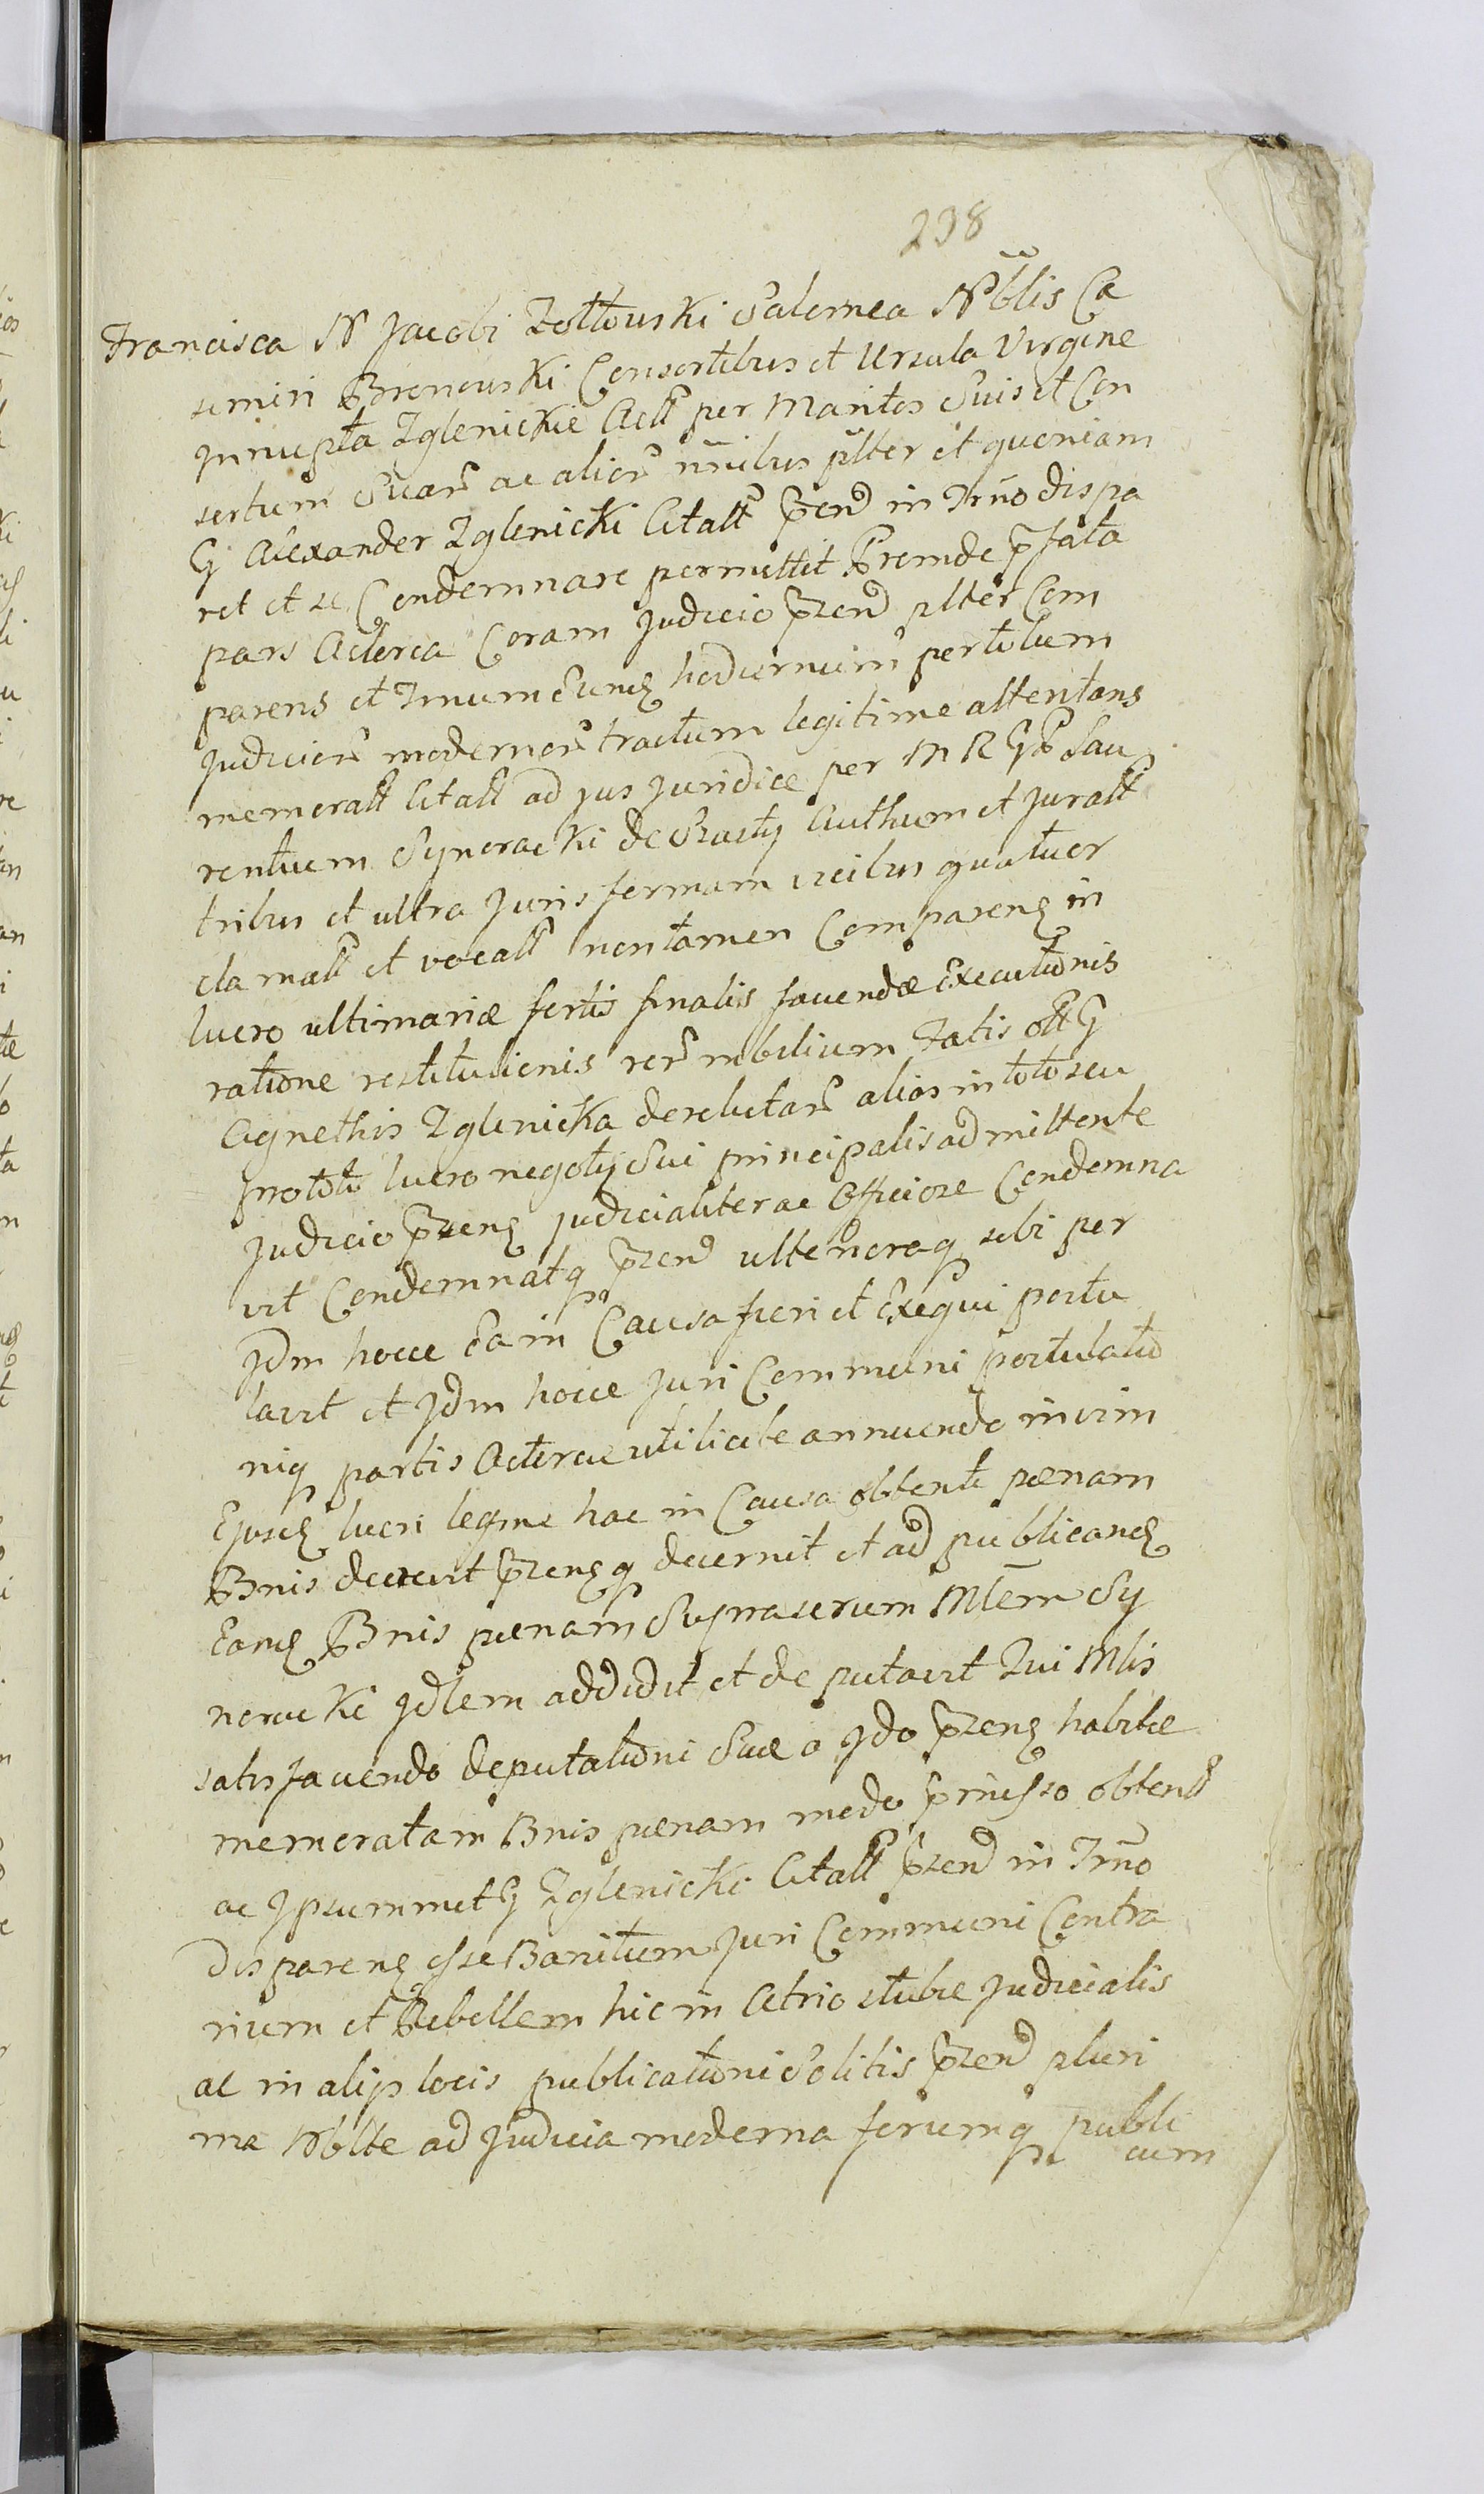 238
Francisca N Jacobi Zołtowski Salomea Nblis Ca
simiri Bronowski Consortibus et Ursula Virgine
Jnnupta Zglenickie Actt per Maritos Suis et Con
sortum Suar ac alior nnibus plter et quoniam
G Alexander Zglenicki Citatt przen in Trno dispa
ret et se Condemnare permittit Proinde pfata
pars Actorea Coram Judicio przen plter Com
parens et Tnum Eunq hodiernum per totum
Judicior modernor tractum legitime attentans
memoratt Citatt ad jus juridice per M R Go Lau
rentium Synoracki de Szasty Authum et juratt
tribus et ultra juris formam vicibus quatuor
clamatt et vocatt non tamen Comparenq in
lucro ultimariæ fortis finalis faciendæ Executionis
ratione restitutionis rer mobilium Fatis ott G
Agnethis Zglenicka derelictar alias in toto seu
pro toto lucro negotij Sui principalis admittente
judicio przenq judicialiter ac Officiose Condemna
vit Condemnatq przen ulterioraq sibi per
Jdm hocce Ea in Causa fieri et Exequi postu
lavit et Jdm hocce juri Communi postulatio
niq partis Actoreæ utilicite annuendo in vim
Ejuscq lucri legme hac in Causa obtenti pænam
Bnis decrevit przenq q decernit et ad publicanq
Eanq Bnis pænam Suprascrum Mtem Sy
noracki Jdlem addidit et deputavit Qui Mtis
satisfaciendo deputationi Suæ a Jdo przenq habitæ
memoratam Bnis pænam modo pmisso obtentt
ac Jpsummet G Zglenicki Citatt przen in Trno
disparenq esse Banitum juri Communi Contra
rium et Rebellem hic in Atrio stubæ judicialis
ac in alijs locis publicationi Solitis przen pluri
ma Nblte ad Judicia moderna forumq publi
cum